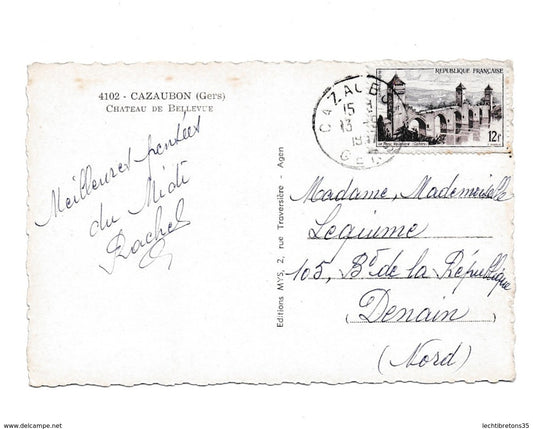 4102 - CAZAUBON (Gers)
CHATEAU DE BELLEVUE
Meilleures pensées
du Midi
Rachel
Editions MYS, 2, rue Traversière - Agen
CAZAUBON
15 H
13
GERS
REPUBLIQUE FRANÇAISE
12F
Madame, Mademoiselle
Legiume
105, Bd de la République
Denain
(Nord)
lechtibretons35